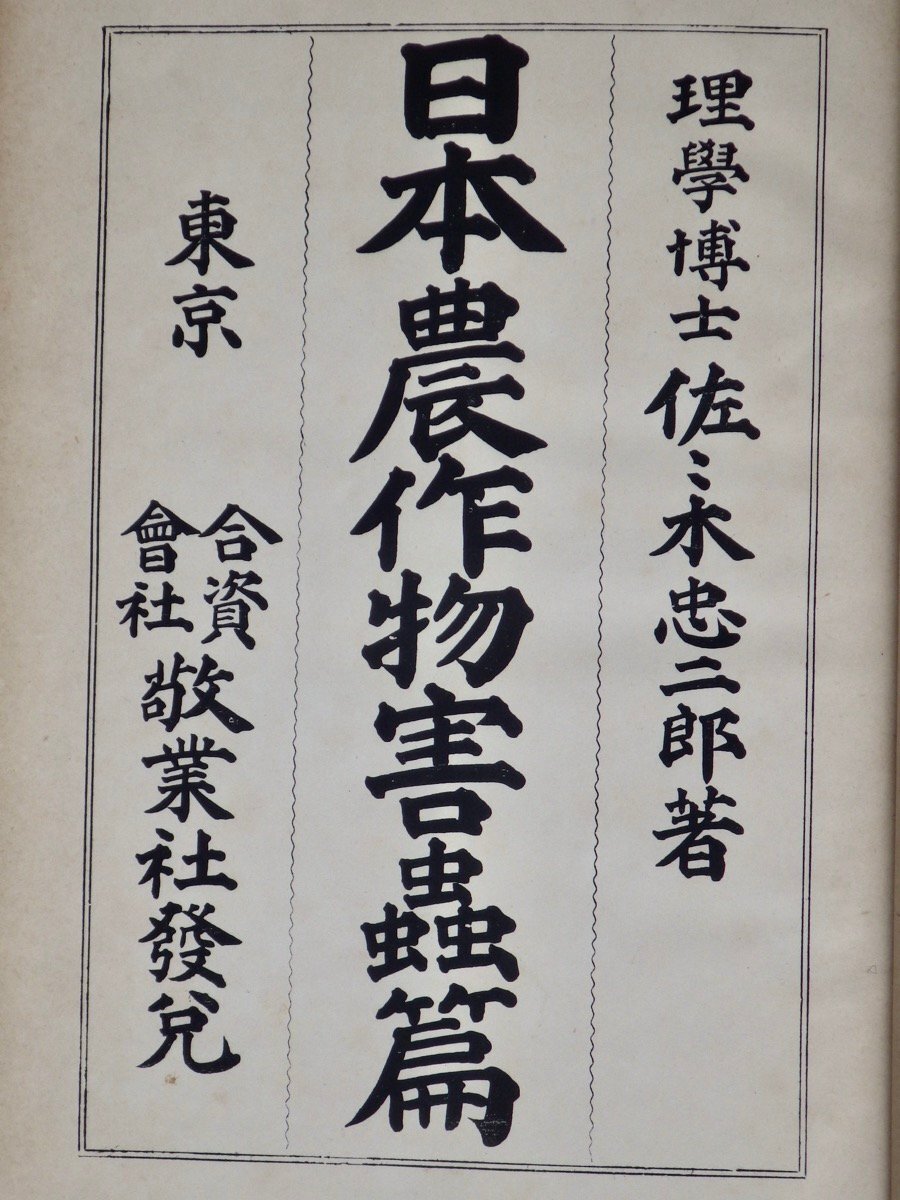 理學博士佐〻木忠二郎著
日本農作物害蟲篇
東京
合資
會社
敬業社發兌